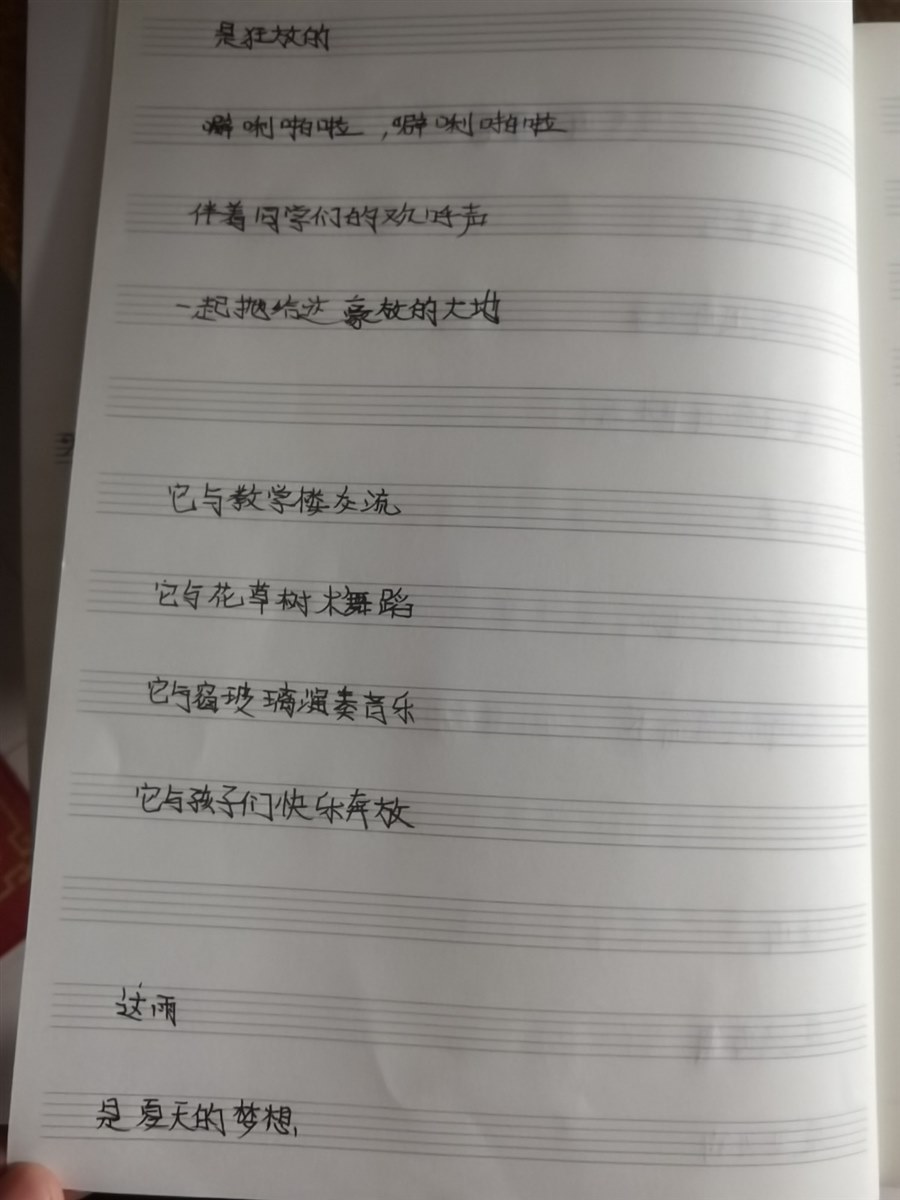 是狂放的
噼唎啪啦，噼唎啪啦
伴着同学们的欢呼声
一起抛给这豪放的大地
它与教学楼交流
它与花草树木舞蹈
它与窗玻璃演奏音乐
它与孩子们快乐奔放
这雨
是夏天的梦想，